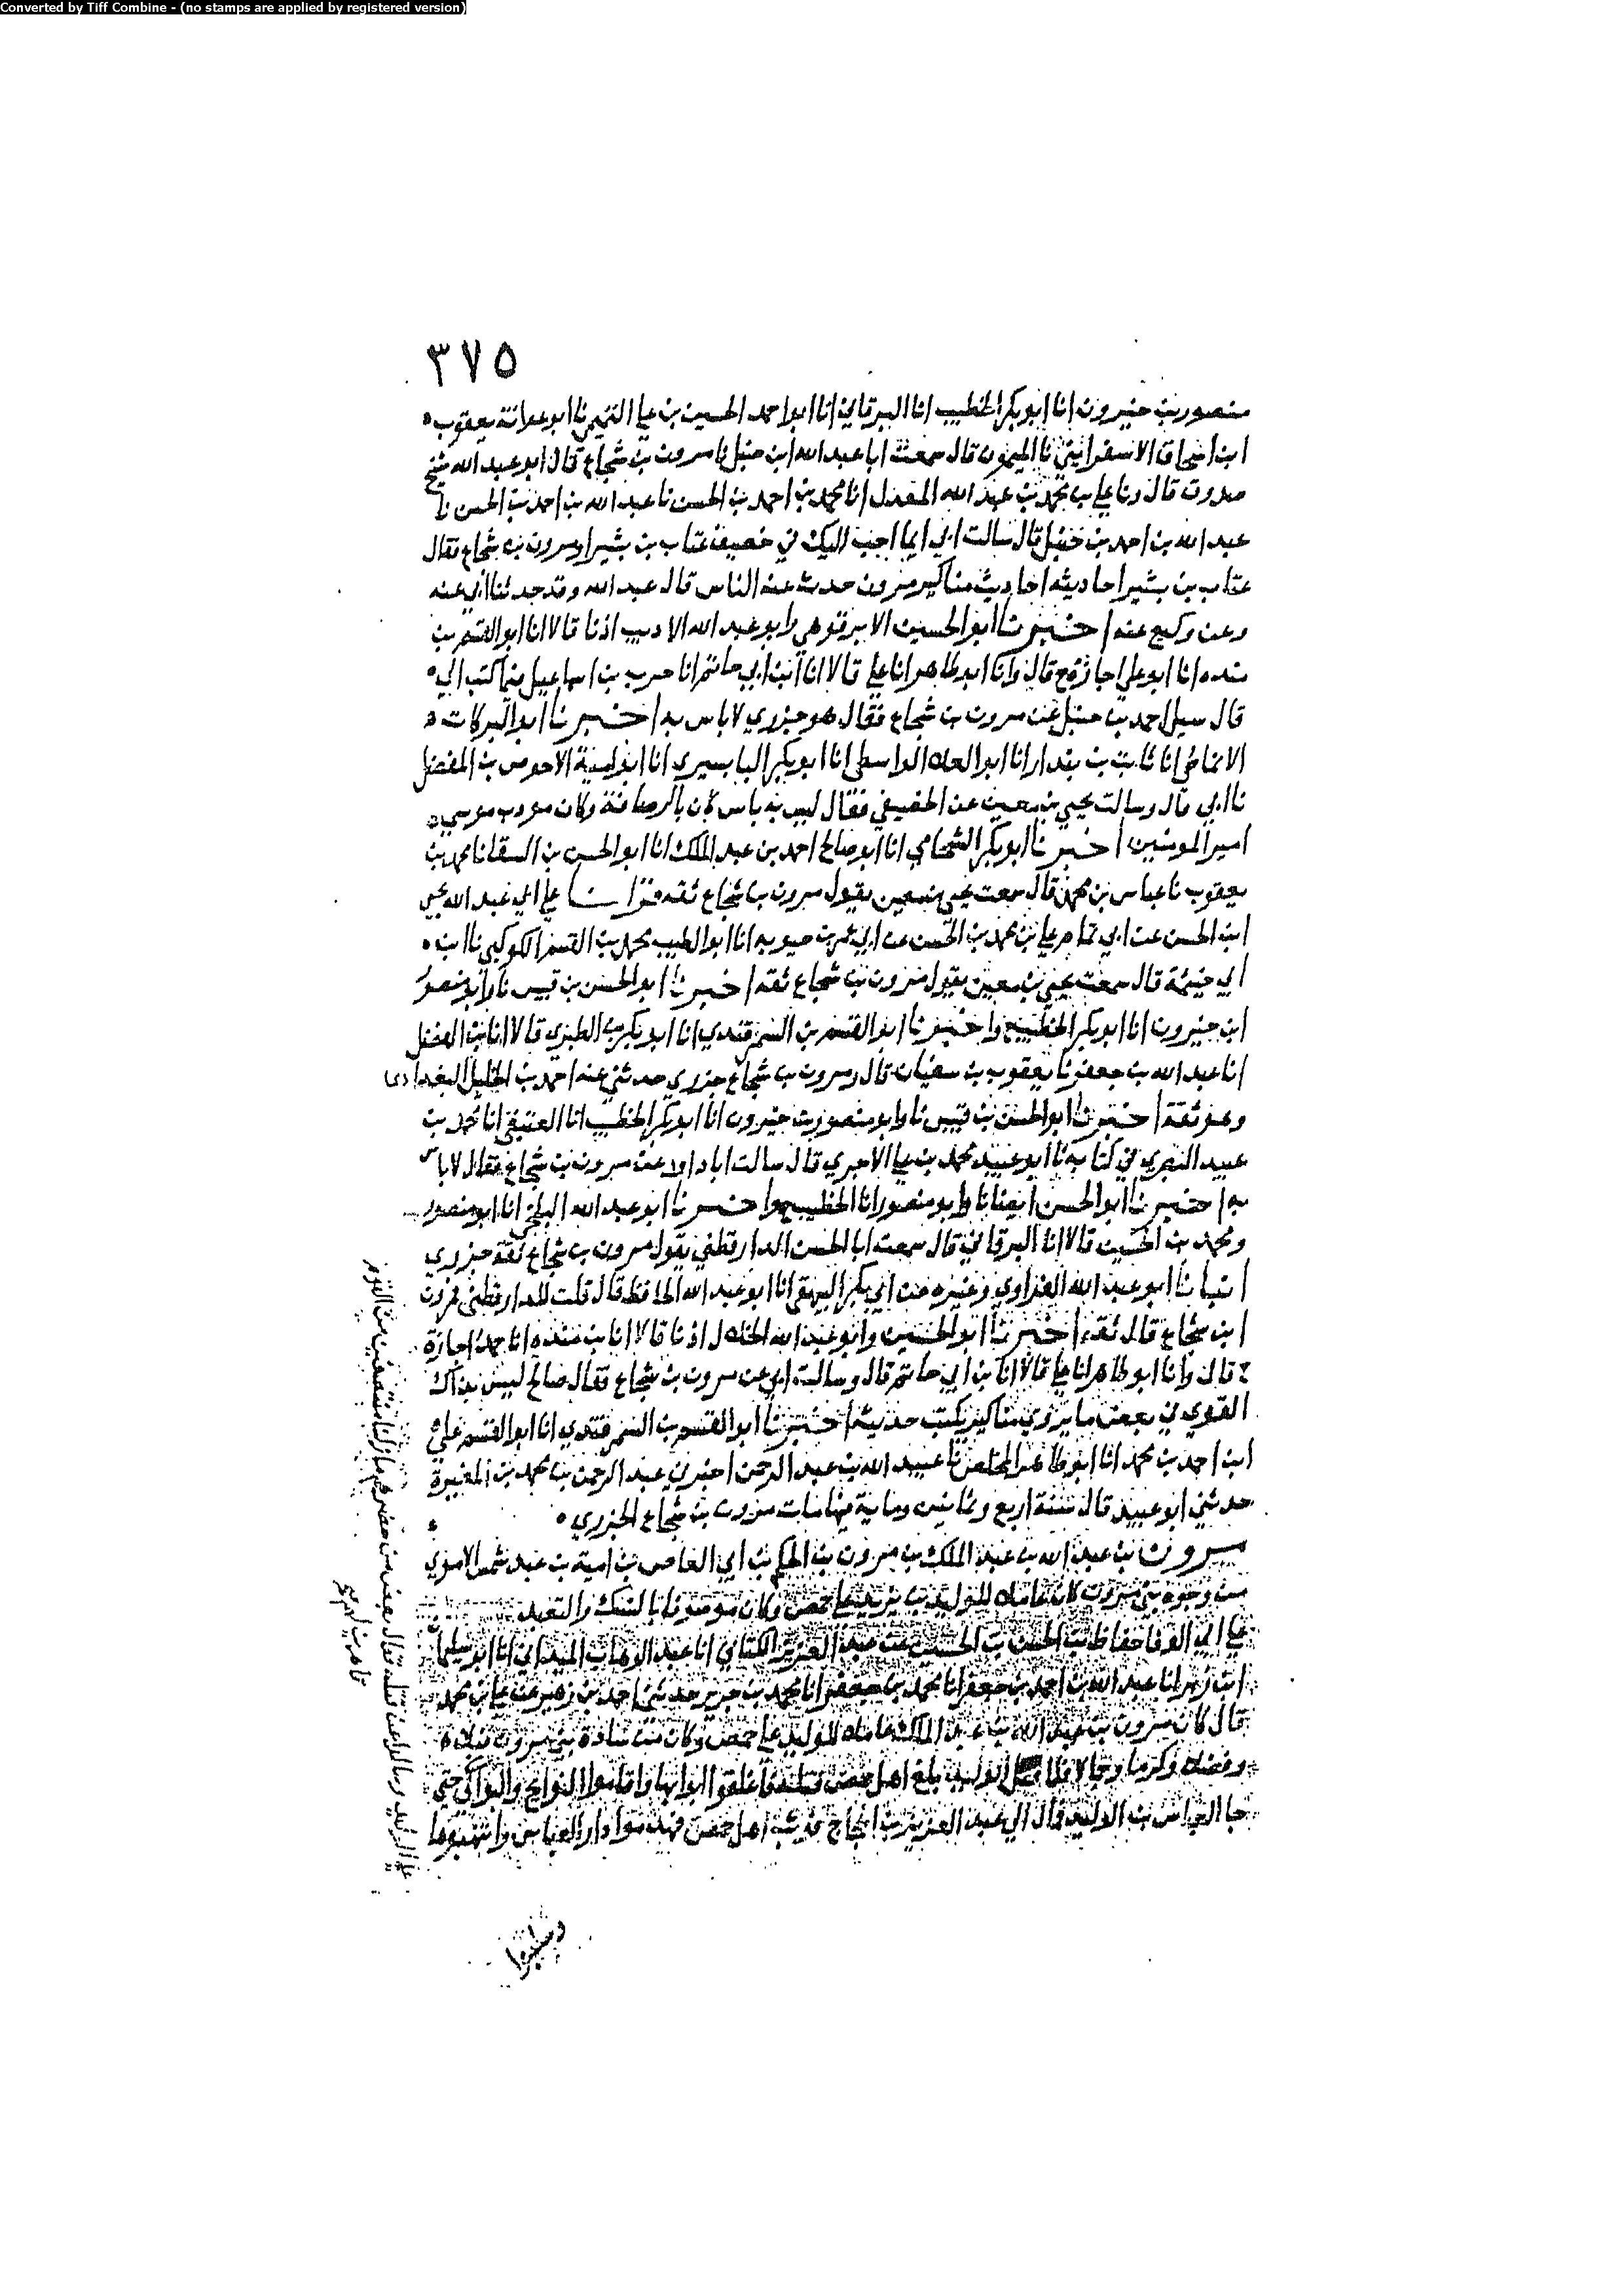 Converted by Tiff Combine - (no stamps are applied by registered version)
٣٧٥
منصور بن خيرون انا ابو بكر الخطيب انا البرقاني انا ابو احمد الحسين بن علي التميمي نا ابو عوانة يعقوب
ابن اسحاق الاسفرايني نا الميموني قال سمعت ابا عبد الله ابن حنبل نا مروان بن شجاع قال ابو عبد الله شيخ
صدوق قال ونا علي بن محمد بن عبد الله المعدل انا محمد بن احمد بن الحسن نا عبد الله بن احمد بن الحسن نا
عبد الله بن احمد بن حنبل قال سالت ابي ايما احب اليك في خصيف عتاب بن بشير او مروان بن شجاع فقال
عتاب بن بشير احاديثه احاديث مناكير مروان حدث عنه الناس قال عبد الله وقد حدثنا ابي عنه
وعن وكيع عنه اخبرنا ابو الحسين الابرقوهي وابو عبد الله الاديب اذنا قالا انا ابو القسم بن
منده انا ابو علي اجازة ح قال وانا ابو طاهر انا علي قالا انا ابن ابي حاتم انا حرب بن اسماعيل فيما كتب الي
قال سيل احمد بن حنبل عن مروان بن شجاع فقال هو جزري لا باس به اخبرنا ابو البركات
الانماطي انا ثابت بن بندار انا ابو العلا الواسطي انا ابو بكر البابسيري انا ابو امية الاحوص بن المفضل
نا ابي قال وسالت يحيى بن معين عن الخصيفي فقال ليس به باس كان بالرصافة وكان مودب موسى
امير المومنين اخبرنا ابو بكر الشحامي انا ابو صالح احمد بن عبد الملك انا ابو الحسن بن السقا نا محمد بن
يعقوب نا عباس بن محمد قال سمعت يحيى بن معين يقول مروان بن شجاع ثقه قرانا علي ابي عبد الله يحيى
ابن الحسن عن ابي تمام علي بن محمد بن الحسن عن ابي عمر بن حيويه انا ابو الطيب محمد بن القسم الكوكبي نا ابن
ابي خيثمة قال سمعت يحيى بن معين يقول مروان بن شجاع ثقه اخبرنا ابو الحسن بن قبيس نا وابو منصور
ابن خيرون انا ابو بكر الخطيب ح واخبرنا ابو القسم بن السمرقندي انا ابو بكر بن الطبري قالا انا ابن الفضل
انا عبد الله بن جعفر نا يعقوب بن سفيان قال ومروان بن شجاع جزري حدثني عنه احمد بن الخليل البغدادي
وهو ثقة اخبرنا ابو الحسن بن قبيس نا وابو منصور بن خيرون انا ابو بكر الخطيب انا العتيقي انا محمد بن
نا ابو عبيد محمد بن علي الاجري قال سالت ابا داود عن مروان بن شجاع فقال لا باس
به اخبرنا ابو الحسن ايضا نا وابو منصور انا الخطيب ح واخبرنا ابو عبد الله البلخي انا ابو منصور
ومحمد بن الحسين قالا انا البرقاني قال سمعت ابا الحسن الدارقطني يقول مروان بن شجاع ثقة جزري
انبانا ابو عبد الله الفراوي وغيره عن ابي بكر البيهقي انا ابو عبد الله الحافظ قال قلت للدارقطني فمروان
ابن شجاع قال ثقه اخبرنا ابو الحسين وابو عبد الله الخلال اذنا قالا انا بن منده انا حمد اجازة
ح قال وانا ابو طاهر انا علي قالا انا بن ابي حاتم قال وسالت ابي عن مروان بن شجاع فقال صالح ليس بذاك
القوي في بعض ما يروي مناكير يكتب حديثه اخبرنا ابو القسم بن السمرقندي انا ابو القسم علي
ابن احمد بن محمد انا ابو طاهر المخلص نا عبيد الله بن عبد الرحمن اخبرني عبد الرحمن بن محمد بن المغيرة
حدثني ابو عبيد قال سنة اربع وثمانين وماية فيها مات مروان بن شجاع الجزري
مروان بن عبد الله بن عبد الملك بن مروان بن الحكم بن ابي العاص بن امية بن عبد شمس الاموي
من وجوه بني مروان كان عاملا للوليد بن يزيد علي حمص وكان موصوفا بالنسك والتعبد
علي ابي الوفا حفاظ بن الحسن بن الحسين عن عبد العزيز الكتاني انا عبد الوهاب الميداني انا ابو سليمان
ابن زبر انا عبد الله بن احمد بن جعفر انا محمد بن جعفر انا محمد بن جرير حدثني احمد بن زهير عن علي بن محمد
قال كان مروان بن عبد الله بن عبد الملك عاملا للوليد علي حمص وكان من سادة بني مروان نبلا
وفضلا وكرما وجمالا فلما قتل الوليد بلغ اهل حمص قتله فاغلقوا ابوابها واقاموا النوايح والبواكي حتى
جا العباس بن الوليد فمال الي عبد العزيز بن الحجاج فوثب اهل حمص فهدموا دار العباس وانتهبوها